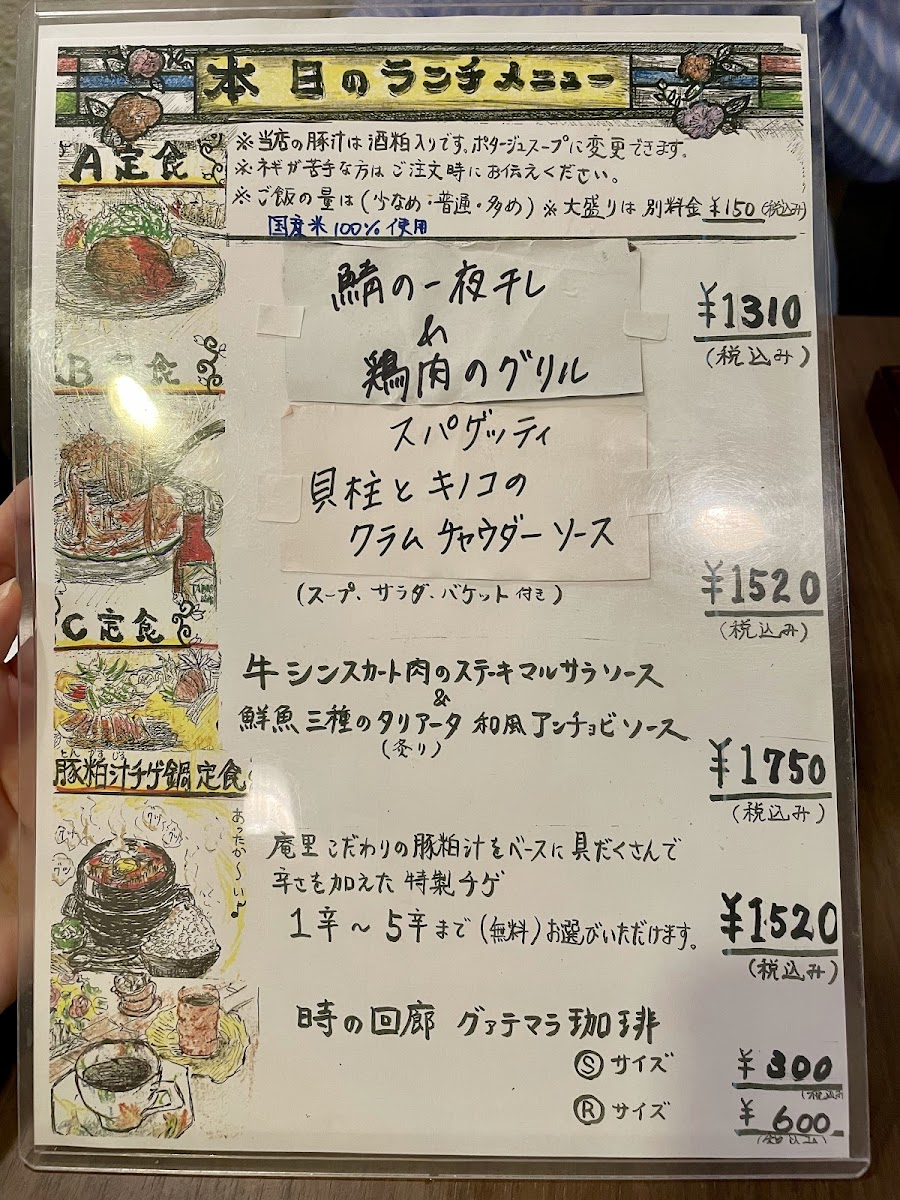 本日のランチメニュー
※当店の豚汁は酒粕入りです。ポタージュスープに変更できます。
※ネギが苦手な方はご注文時にお伝えください。
※ご飯の量は(少なめ・普通・多め)※大盛りは別料金¥150(税込み)
国産米100%使用
A定食
鯖の一夜干し
&
鶏肉のグリル
¥1310
(税込み)
B定食
スパゲッティ
貝柱とキノコの
クラムチャウダーソース
(スープ、サラダ、バケット付き)
¥1520
(税込み)
C定食
牛シンスカート肉のステーキマルサラソース
&
鮮魚三種のタリアータ 和風アンチョビソース
(炙り)
¥1750
(税込み)
豚粕汁チゲ鍋定食
あったか〜い♪
庵里こだわりの豚粕汁をベースに具だくさんで
辛さを加えた特製チゲ
1辛〜5辛まで(無料)お選びいただけます。
¥1520
(税込み)
時の回廊 グァテマラ珈琲
Ⓢサイズ ¥300
(税込み)
Ⓡサイズ ¥600
(税込み)